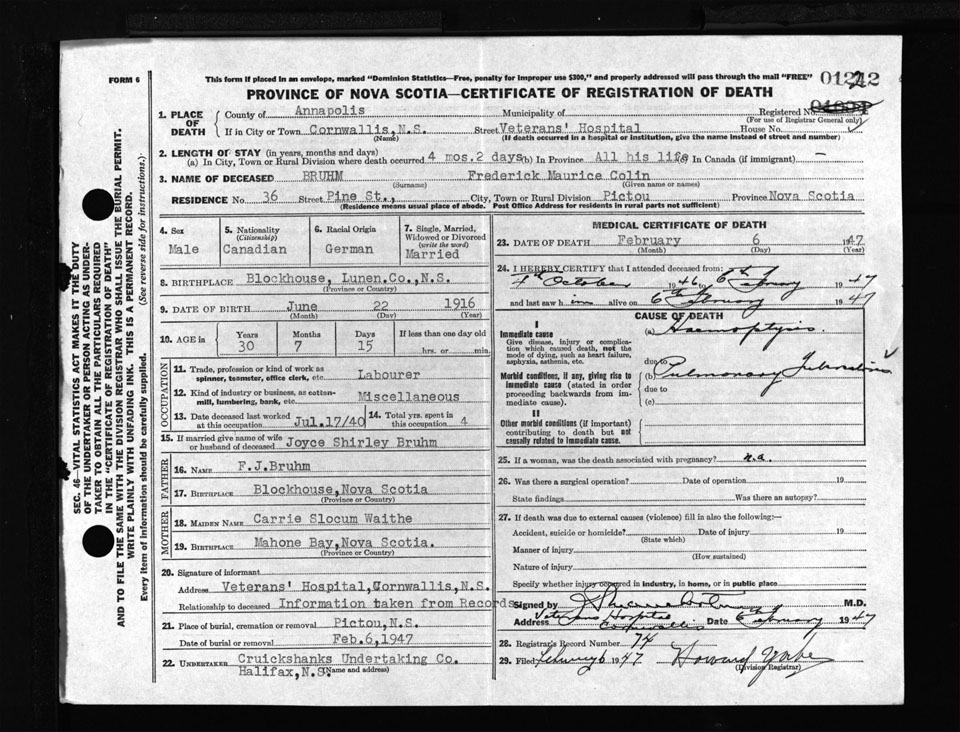 FORM 6
This form if placed in an envelope, marked "Dominion Statistics—Free, penalty for improper use $300," and properly addressed will pass through the mail "FREE"
PROVINCE OF NOVA SCOTIA—CERTIFICATE OF REGISTRATION OF DEATH
1. PLACE OF DEATH
County of Annapolis Municipality of Registered No.
(For use of Registrar General only)
If in City or Town Cornwallis,N.S. Street Veterans' Hospital House No.
(Name) (If death occurred in a hospital or institution, give the name instead of street and number)
2. LENGTH OF STAY (in years, months and days)
(a) In City, Town or Rural Division where death occurred 4 mos.2 days (b) In Province All his life (c) In Canada (if immigrant) —
3. NAME OF DECEASED BRUHM Frederick Maurice Colin
(Surname) (Given name or names)
RESIDENCE No. 36 Street Pine St., City, Town or Rural Division Pictou Province Nova Scotia
(Residence means usual place of abode. Post Office Address for residents in rural parts not sufficient)
4. Sex
Male
5. Nationality
(Citizenship)
Canadian
6. Racial Origin
German
7. Single, Married, Widowed or Divorced
(write the word)
Married
8. BIRTHPLACE Blockhouse, Lunen.Co.,N.S.
(Province or Country)
9. DATE OF BIRTH June 22 1916
(Month) (Day) (Year)
10. AGE in
Years Months Days If less than one day old
30 7 15 hrs. or min.
OCCUPATION
11. Trade, profession or kind of work as spinner, teamster, office clerk, etc. Labourer
12. Kind of industry or business, as cotton-mill, lumbering, bank, etc. Miscellaneous
13. Date deceased last worked at this occupation Jul.17/40
14. Total yrs. spent in this occupation 4
15. If married give name of wife or husband of deceased Joyce Shirley Bruhm
FATHER
16. NAME F.J.Bruhm
17. BIRTHPLACE Blockhouse,Nova Scotia
(Province or Country)
MOTHER
18. MAIDEN NAME Carrie Slocum Waithe
19. BIRTHPLACE Mahone Bay,Nova Scotia.
(Province or Country)
20. Signature of informant
Address Veterans' Hospital,Cornwallis,N.S.
Relationship to deceased Information taken from Records
21. Place of burial, cremation or removal Pictou,N.S.
Date of burial or removal Feb.6,1947
22. UNDERTAKER Cruickshanks Undertaking Co.
Halifax,N.S. (Name and address)
MEDICAL CERTIFICATE OF DEATH
23. DATE OF DEATH February 6 1947
(Month) (Day) (Year)
24. I HEREBY CERTIFY that I attended deceased from:
4th October 1946 to 6th February 1947
and last saw him alive on 6th February 1947
CAUSE OF DEATH
I
Immediate cause
Give disease, injury or complication which caused death, not the mode of dying, such as heart failure, asphyxia, asthenia, etc.
(a) Haemoptysis.
due to
Morbid conditions, if any, giving rise to immediate cause (stated in order proceeding backwards from immediate cause).
(b) Pulmonary Tuberculosis
due to
(c)
II
Other morbid conditions (if important) contributing to death but not causally related to immediate cause.
25. If a woman, was the death associated with pregnancy? n.a.
26. Was there a surgical operation? Date of operation 19
State findings Was there an autopsy?
27. If death was due to external causes (violence) fill in also the following:—
Accident, suicide or homicide? Date of injury 19
(State which)
Manner of injury
(How sustained)
Nature of injury
Specify whether injury occurred in industry, in home, or in public place
Signed by M.D.
Address Veterans Hospital Cornwallis Date 6th February 1947
28. Registrar's Record Number 74
29. Filed February 6 1947 Howard
(Division Registrar)
SEC. 46—VITAL STATISTICS ACT MAKES IT THE DUTY
OF THE UNDERTAKER OR PERSON ACTING AS UNDER-
TAKER TO OBTAIN ALL THE PARTICULARS REQUIRED
IN THE "CERTIFICATE OF REGISTRATION OF DEATH"
AND TO FILE THE SAME WITH THE DIVISION REGISTRAR WHO SHALL ISSUE THE BURIAL PERMIT.
WRITE PLAINLY WITH UNFADING INK. THIS IS A PERMANENT RECORD.
Every item of information should be carefully supplied. (See reverse side for instructions.)